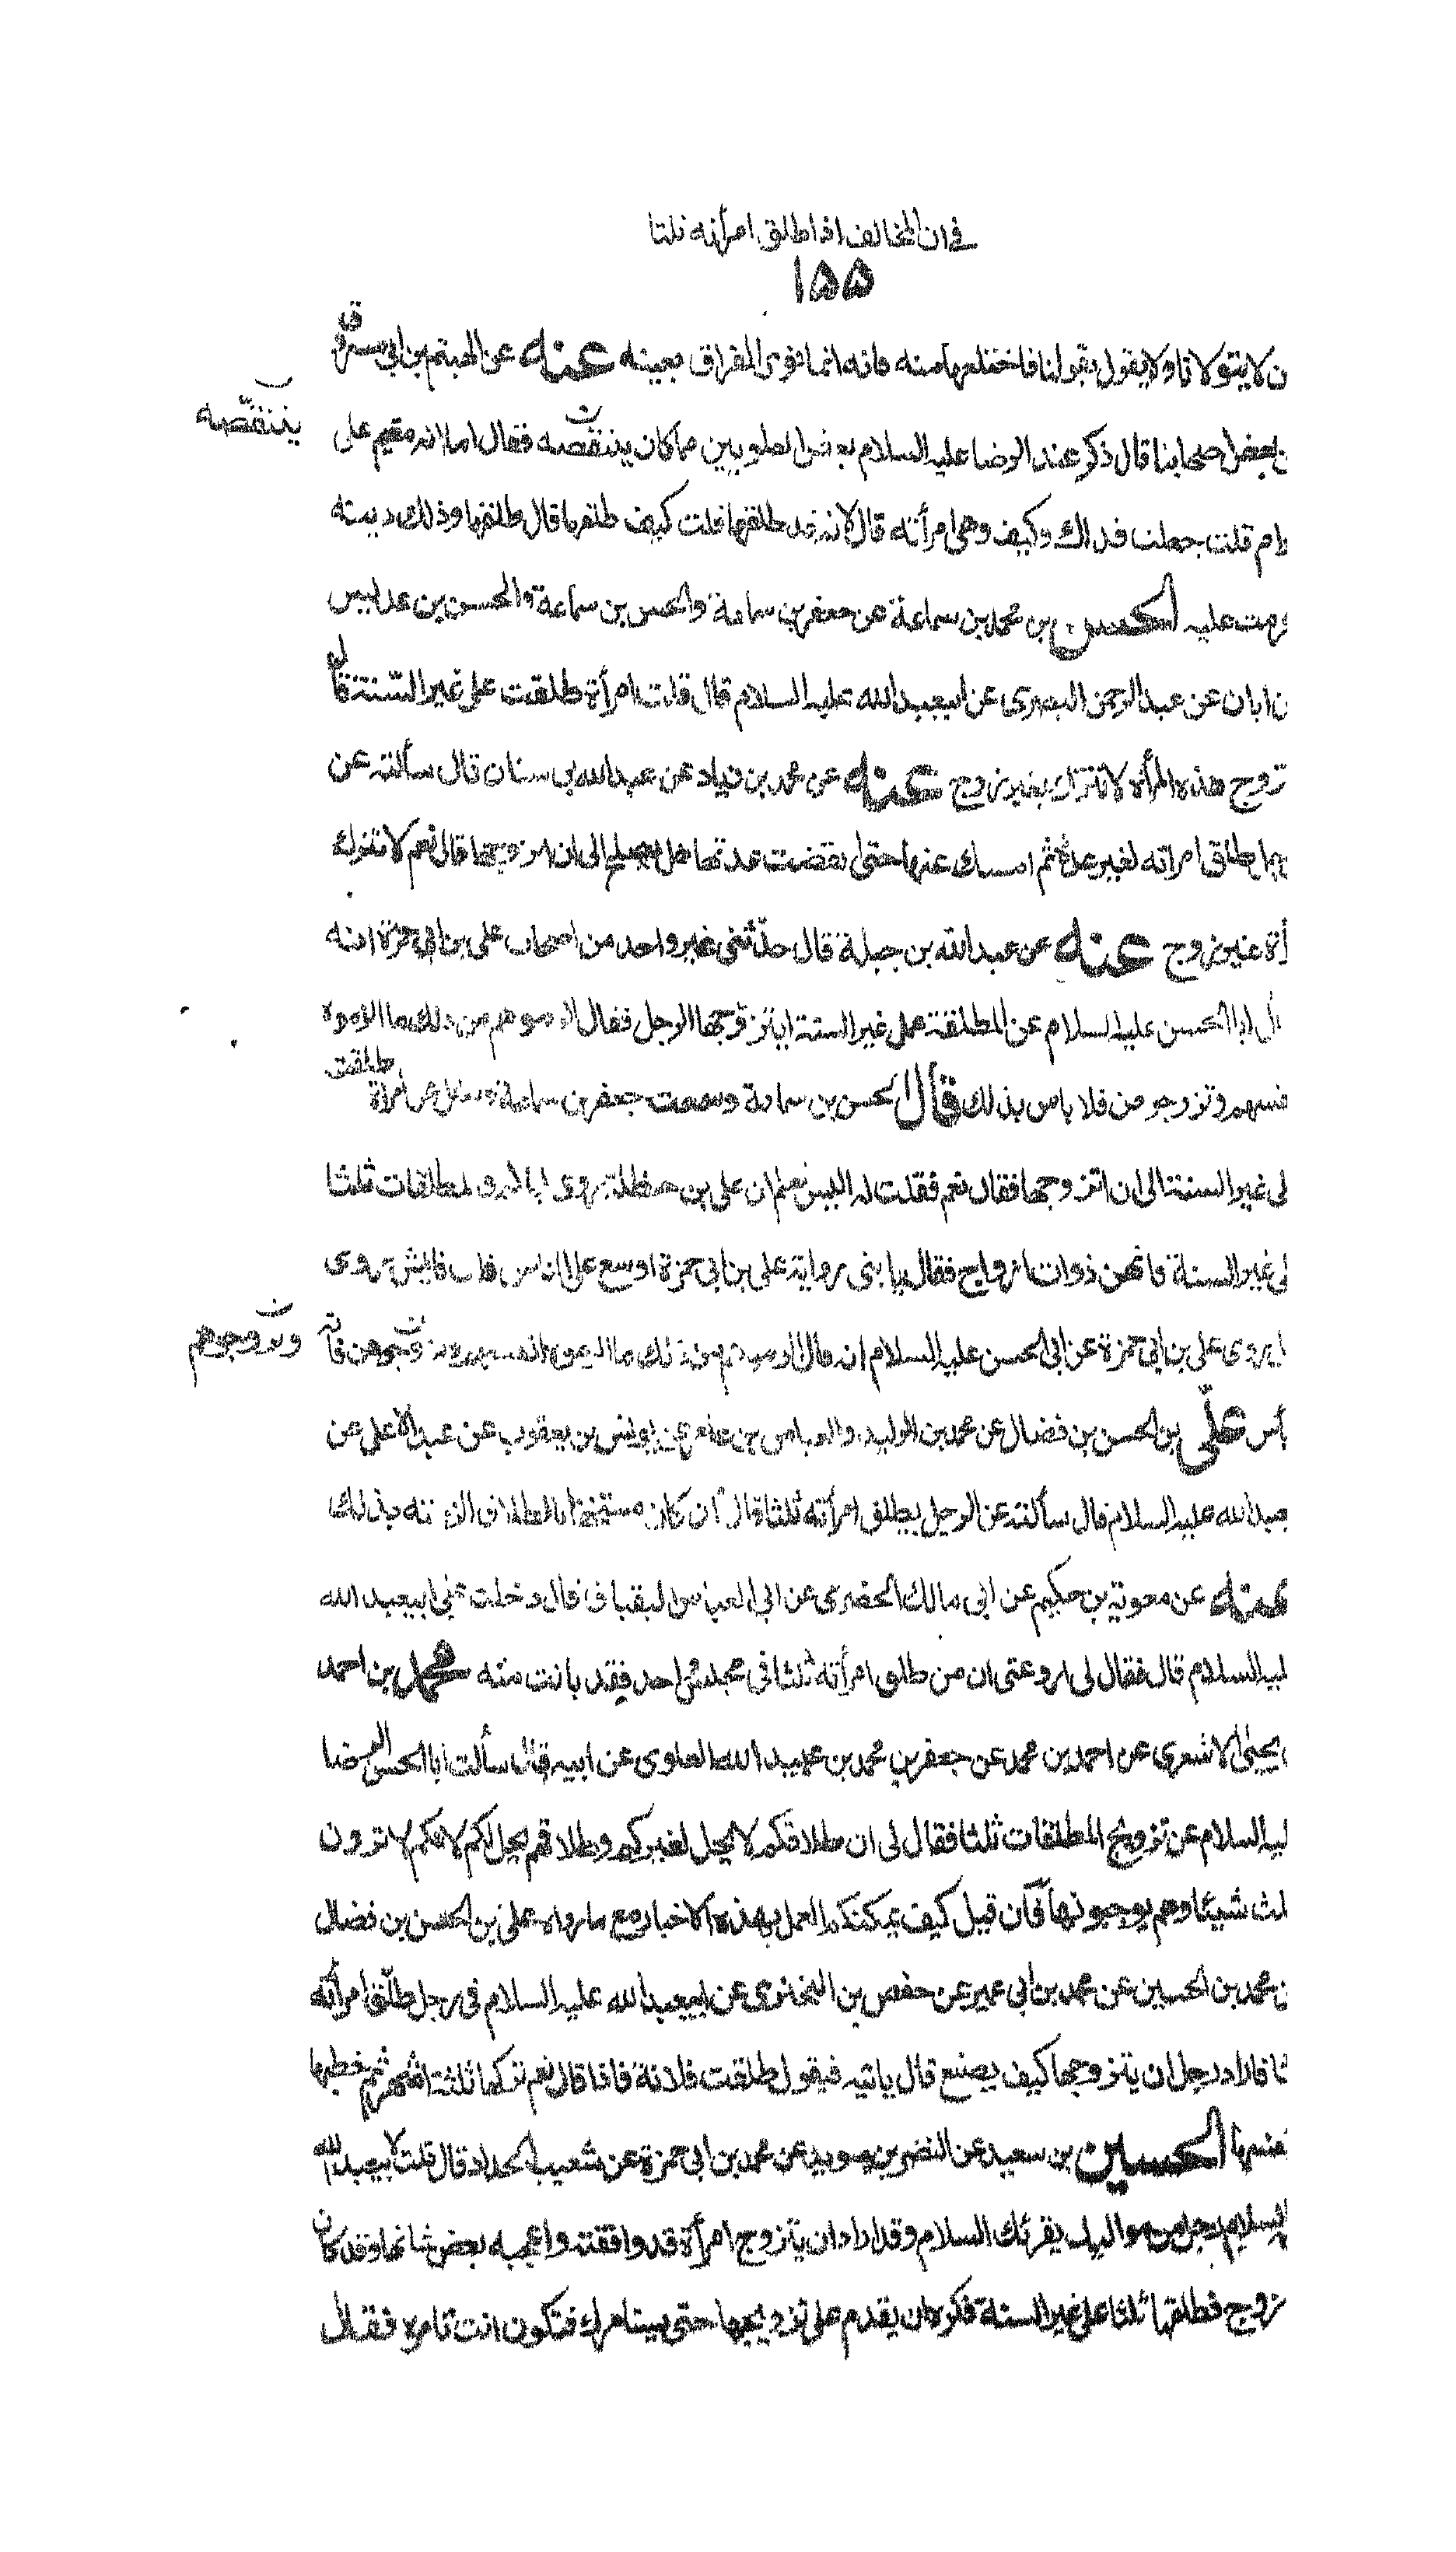 في ان المخالف اذا طلق امرأته ثلثا
١٥٥
ن لا يتولانا ولا يقول بقولنا فاختلعها منه فانه انما نوى الفراق بعينه عنه عن الهيثم بن ابي مسروق
ن بعض اصحابنا قال ذكر عند الرضا عليه السلام بعض العلويين مما كان ينتقصه فقال اما انه مقيم على
ينتقصه
رام قلت جعلت فداك وكيف وهي امرأته قال لانه قد طلقها قلت كيف طلقها قال طلقها وذلك دينه
رمت عليه الحسن بن محمد بن سماعة عن جعفر بن سماعة والحسن بن سماعة والحسن بن عديس
ن ابان عن عبد الرحمن البصري عن ابيعبد الله عليه السلام قال قلت امرأة طلقت على غير السنة قال
تزوج هذه المرأة لا تترك بغير زوج عنه عن محمد بن زياد عن عبد الله بن سنان قال سألته عن
طلق امراته لغير عدة ثم امسك عنها حتى انقضت عدتها هل يصلح الى ان اتزوجها قال نعم لا تترك
رأة بغير زوج عنه عن عبد الله بن جبلة قال حدثني غير واحد من اصحاب علي بن ابي حمزة انه
أل ابا الحسن عليه السلام عن المطلقة على غير السنة ايتزوجها الرجل فقال الزموهم من ذلك ما الزموه
نفسهم وتزوجوهن فلا باس بذلك قال الحسن بن سماعة وسمعت جعفر بن سماعة وسئل عن امرأة طلقت
لى غير السنة الى ان اتزوجها فقال نعم فقلت له اليس تعلم ان علي بن حنظلة روى اياكم و المطلقات ثلثا
لى غير السنة فانهن ذوات ازواج فقال يا بني رواية علي بن ابي حمزة اوسع على الناس قلت فايش روى
ا يروى علي بن ابي حمزة عن ابي الحسن عليه السلام انه قال الزموهم من ذلك ما الزموه انفسهم وتزوجوهن فانه
وتزوجوهم
بأس علي بن الحسن بن فضال عن محمد بن الوليد والعباس بن عامر عن يونس بن يعقوب عن عبد الاعلى عن
عبد الله عليه السلام قال سألته عن الرجل يطلق امرأته ثلثا قال ان كان مستخفا بالطلاق الزمته بذلك
عنه عن معوية بن حكيم عن ابي مالك الحضرمي عن ابي العباس البقباق قال دخلت على ابيعبد الله
ليه السلام قال فقال لي ارو عني ان من طلق امرأته ثلثا في مجلس واحد فقد بانت منه محمد بن احمد
ن يحيى الاشعري عن احمد بن محمد عن جعفر بن محمد بن عبيد الله العلوي عن ابيه قال سألت ابا الحسن الرضا
ليه السلام عن تزويج المطلقات ثلثا فقال لي ان طلاقكم لا يحل لغيركم وطلاقهم يحل لكم لانكم لا ترون
لث شيئا وهم يوجبونها فان قيل كيف يمكنكم العمل بهذه الاخبار مع ما رواه علي بن الحسن بن فضال
ن محمد بن الحسين عن محمد بن ابي عمير عن حفص بن البختري عن ابيعبد الله عليه السلام في رجل طلق امرأته
ثا فاراد رجل ان يتزوجها كيف يصنع قال ياتيه فيقول طلقت فلانة فاذا قال نعم تركها ثلثة اشهر ثم خطبها
نفسها الحسين بن سعيد عن النضر بن سويد عن محمد بن ابي حمزة عن شعيب الحداد قال قلت لابيعبد الله
السلام رجل من مواليك يقرئك السلام وقد اراد ان يتزوج امرأة قد وافقته واعجبه بعض شانها وقد كان
زوج فطلقها ثلثا على غير السنة فكره ان يقدم على تزويجها حتى يستامرك فتكون انت تامره فقال